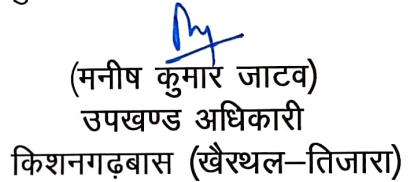 (मनीष कुमार जाटव)
उपखण्ड अधिकारी
किशनगढ़बास (खैरथल–तिजारा)